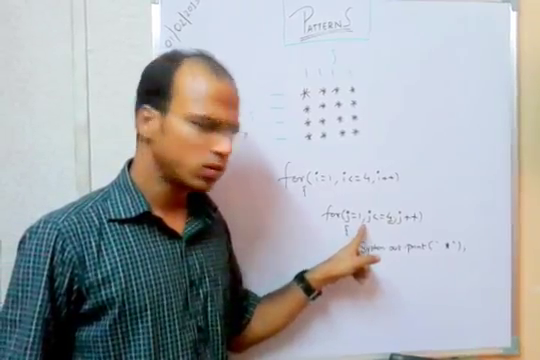 01/02/2013
PATTERNS
j
* * * *
* * * *
* * * *
* * * *
for(i=1, i<=4, i++)
{
for(j=1, j<=4, j++)
{
System.out.print("*");